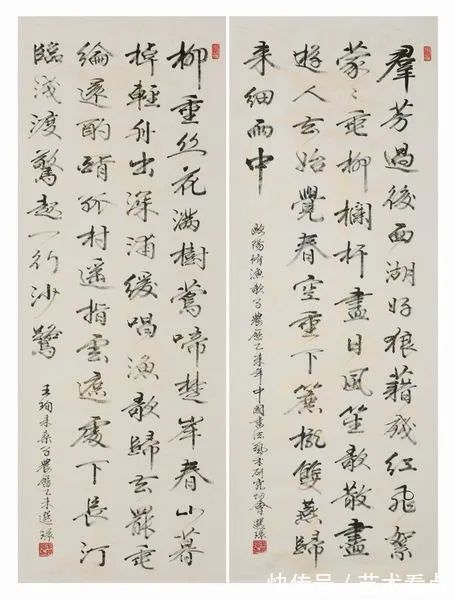 羣芳過後西湖好狼藉残红飛絮
蒙〻垂柳欄杆盡日風笙歌散盡
遊人去始覺春空垂下簾櫳雙燕歸
来細雨中
歐陽修漁歌子農曆乙未年中國書法藝术研究
柳垂丝花滿樹鶯啼楚岸春山暮
棹輕舟出深浦緩唱漁歌歸去罷垂
綸還酌醑孤村遥指雲遮處下長汀
臨淺渡驚起一行沙鷺
王珣采桑子農曆乙未選
快传号 / 艺术看点